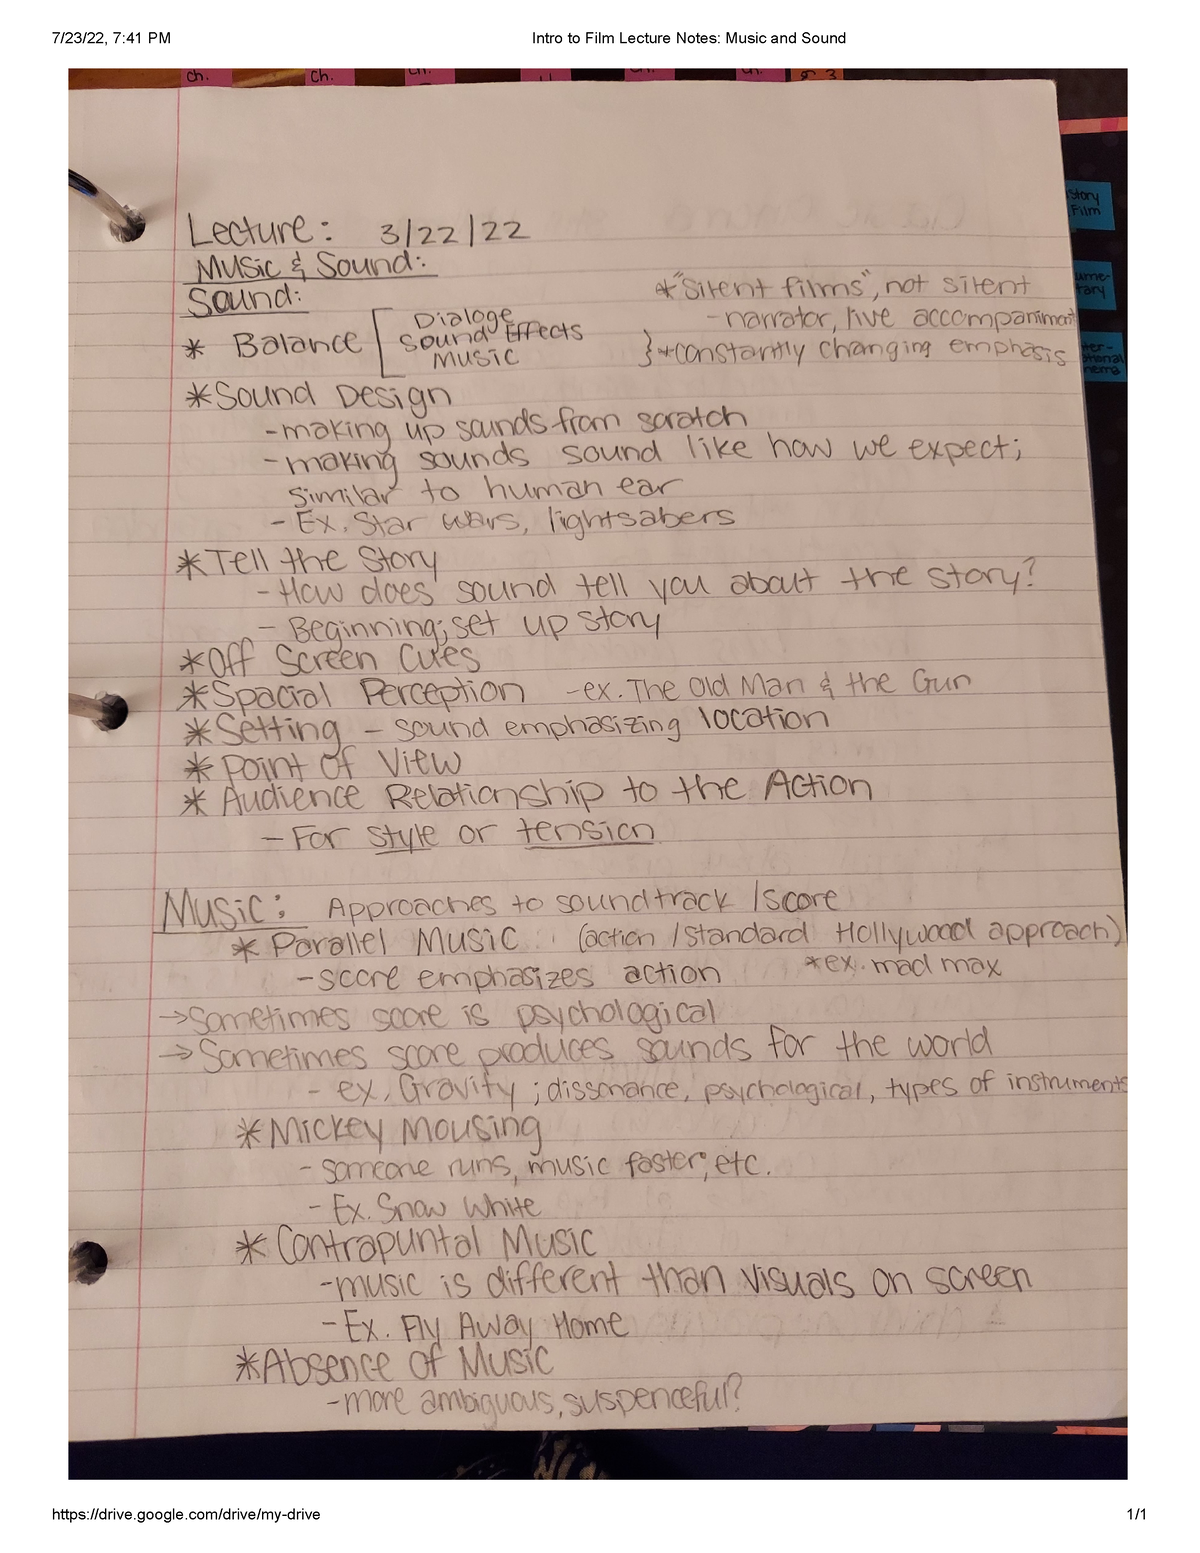 7/23/22, 7:41 PM Intro to Film Lecture Notes: Music and Sound
ch. ch. ch. ch.
Story
Film
Lecture: 3/22/22
Music & Sound:
Sound:
* "Silent films", not silent
- narrator, live accompaniment
* Balance [ Dialoge
Sound Effects
Music
} * constantly changing emphasis
* Sound Design
- making up sounds from scratch
- making sounds sound like how we expect;
similar to human ear
- Ex. Star wars, lightsabers
* Tell the Story
- How does sound tell you about the story?
- Beginning; set up story
* Off Screen Cues
* Spacial Perception - ex. The Old Man & the Gun
* Setting - sound emphasizing location
* Point of View
* Audience Relationship to the Action
- For style or tension
Music: Approaches to soundtrack /score
* Parallel Music (action /standard Hollywood approach)
- score emphasizes action * ex. mad max
→ Sometimes score is psychological
→ Sometimes score produces sounds for the world
- ex. Gravity ; dissonance, psychological, types of instruments
* Mickey Mousing
- someone runs, music faster, etc.
- Ex. Snow White
* Contrapuntal Music
- music is different than visuals on screen
- Ex. Fly Away Home
* Absence of Music
- more ambiguous, suspenceful?
https://drive.google.com/drive/my-drive 1/1